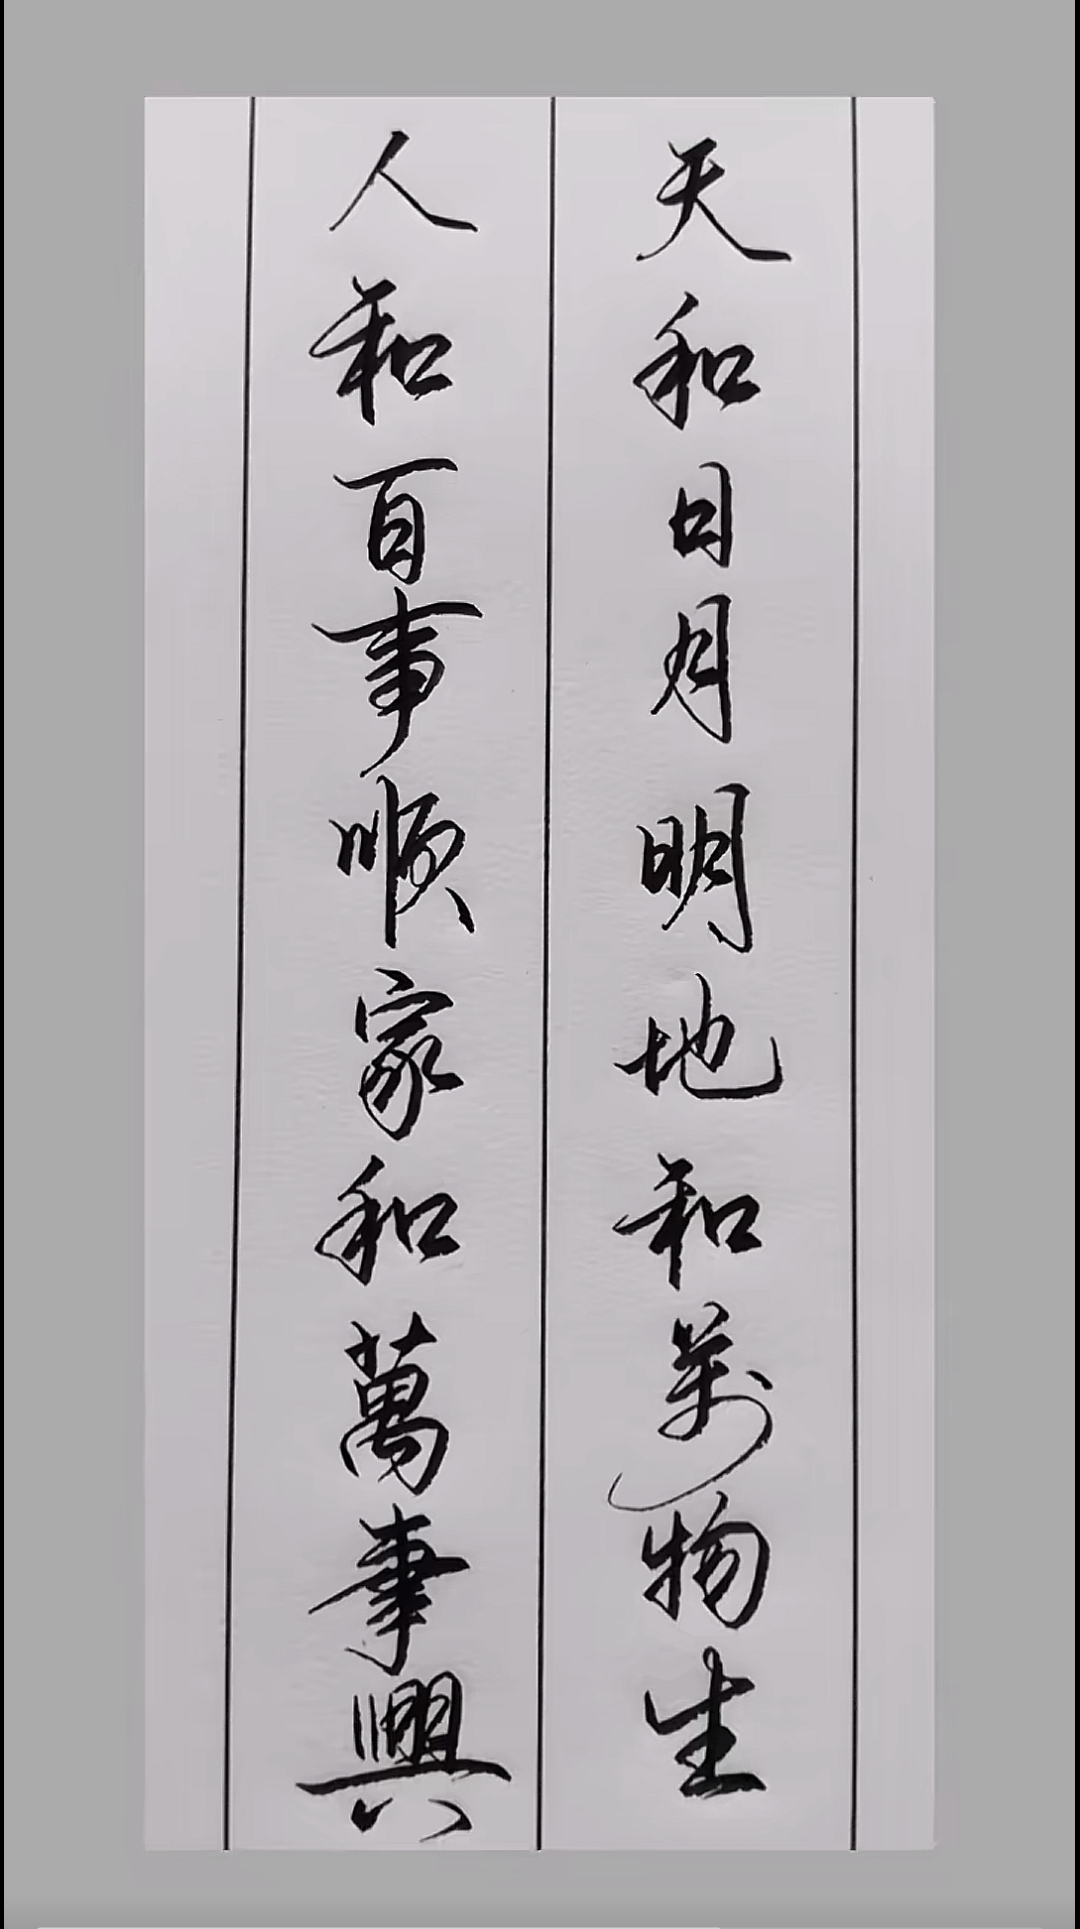 天和日月明地和萬物生
人和百事順家和萬事興